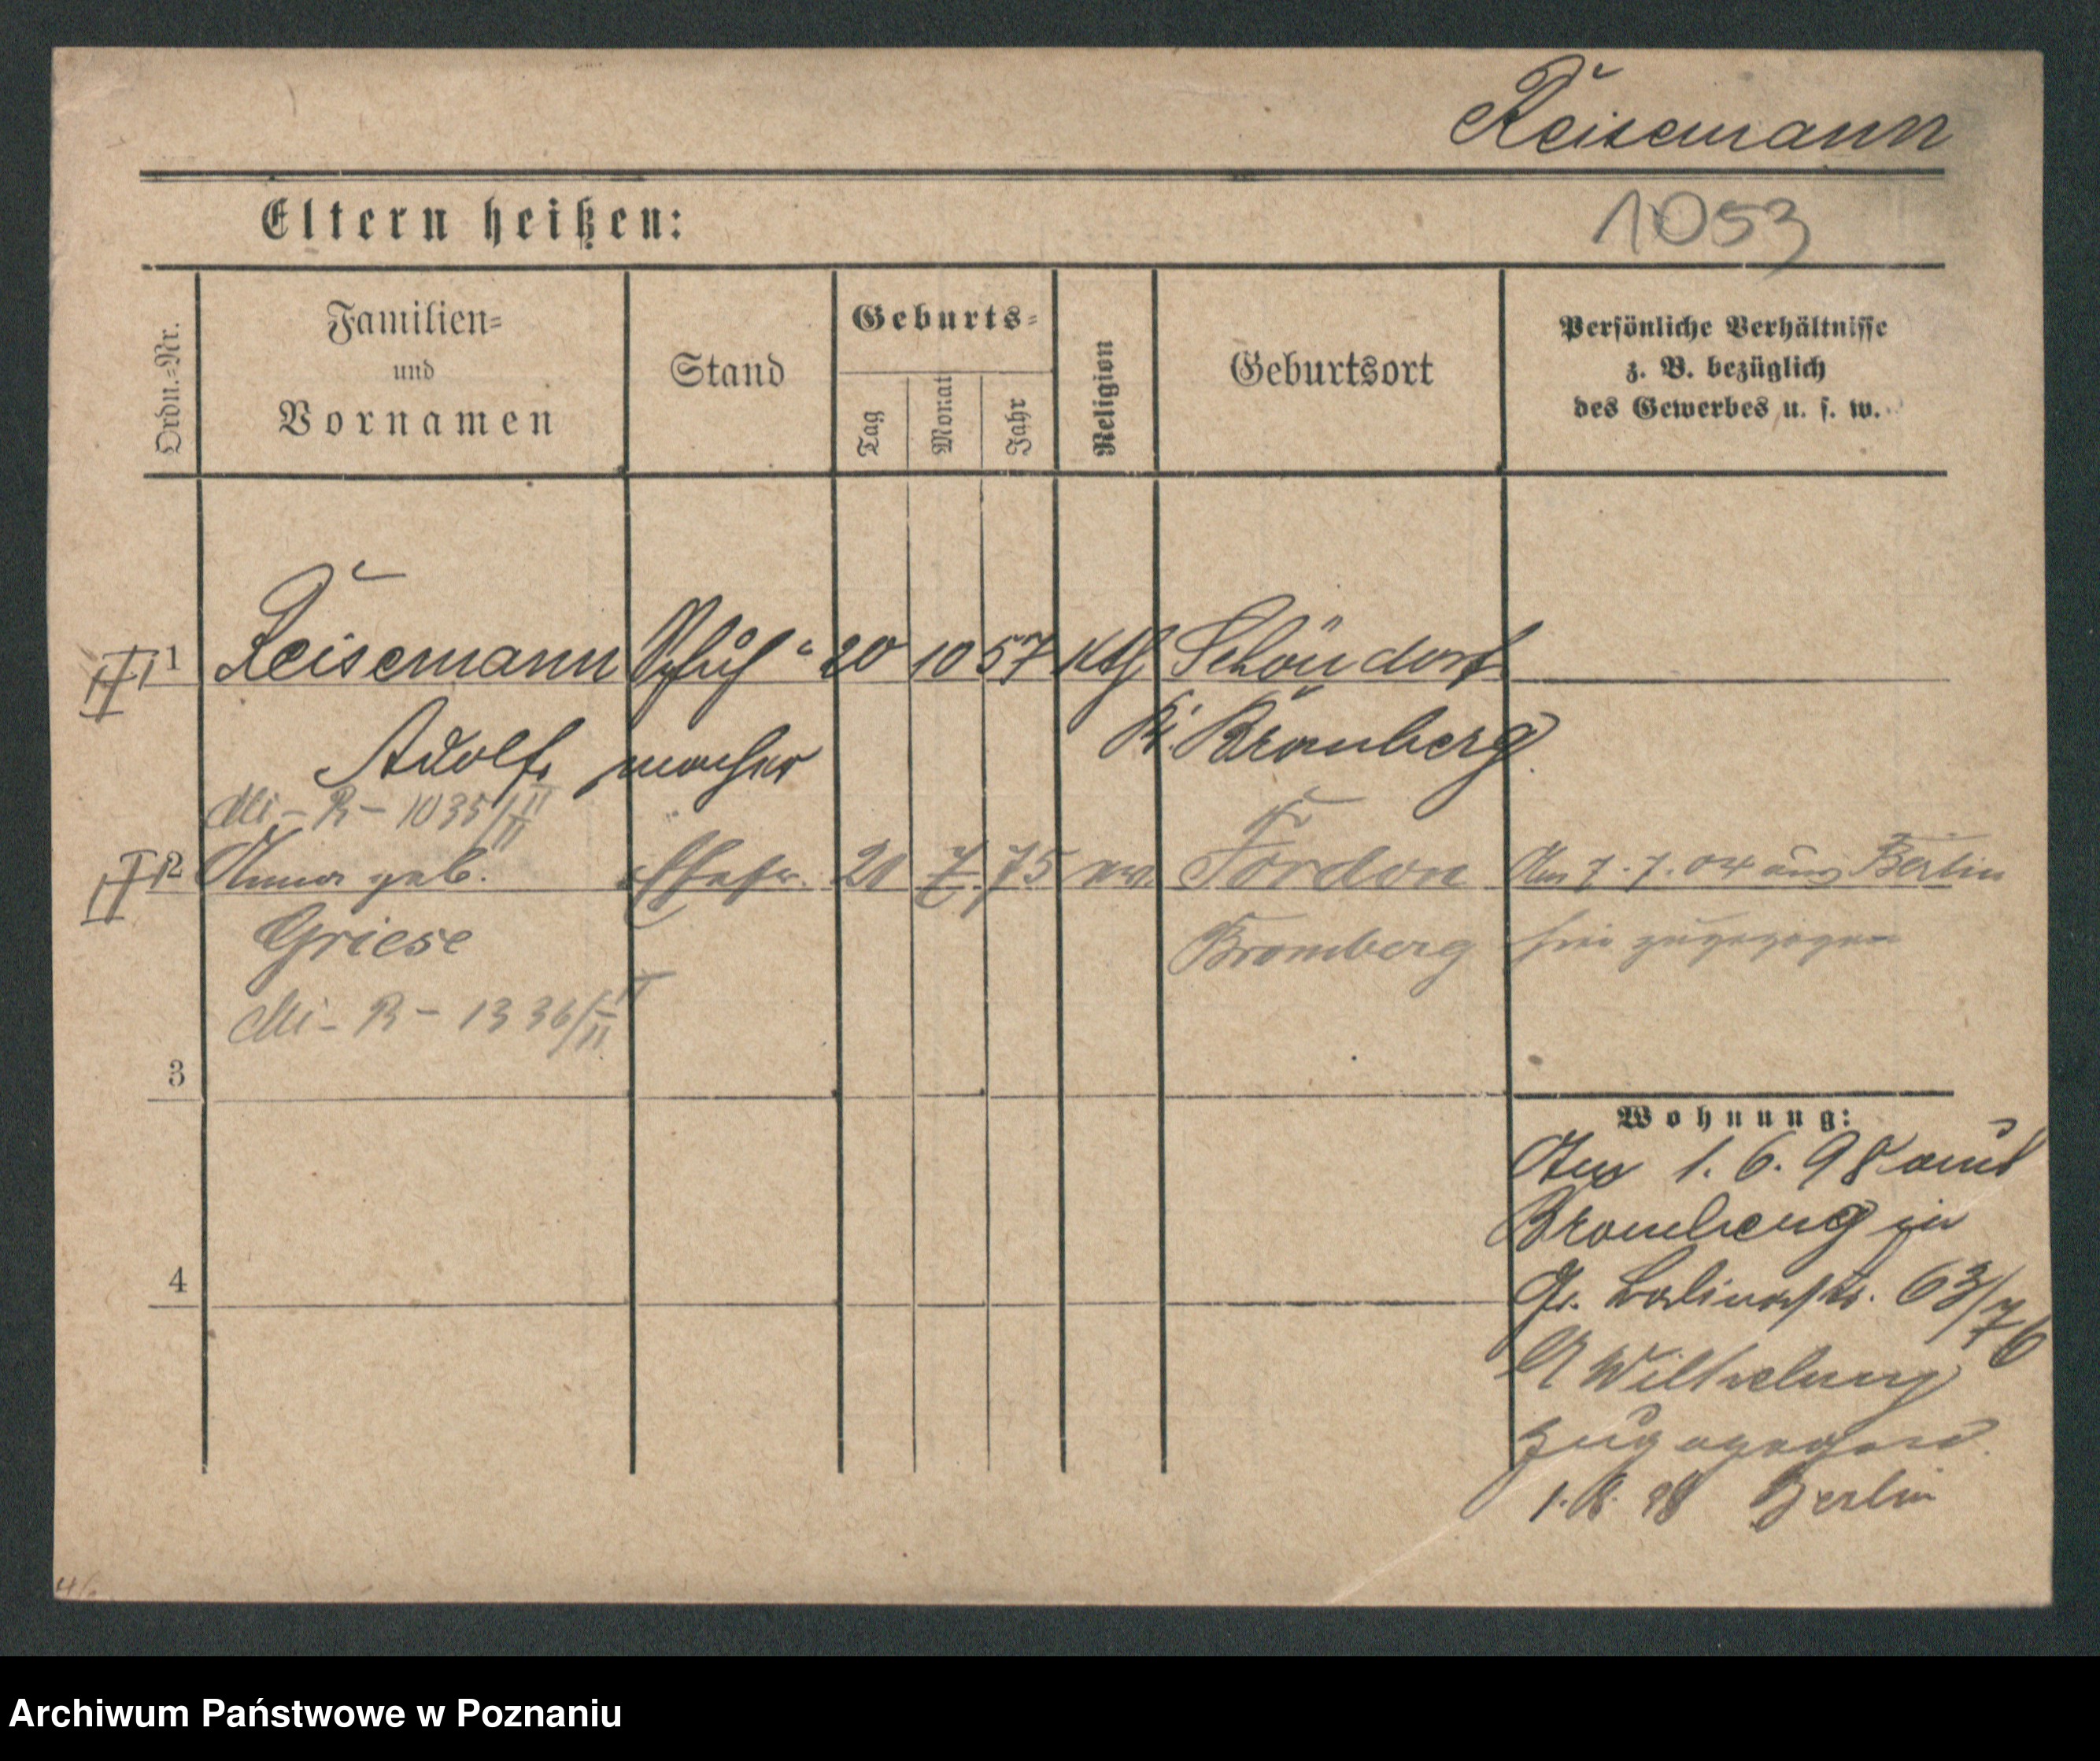 Reisemann
Eltern heißen:
1053
Ordn.-Nr.
Familien-
und
Vornamen
Stand
Geburts-
Tag
Monat
Jahr
Religion
Geburtsort
Persönliche Verhältnisse
z. B. bezüglich
des Gewerbes u. s. w.
1 Reisemann Schuh- 20 10 57 kth Schöndorf
Adolf, macher Kr. Bromberg.
Mi - R - 1035/II
2 Anna geb. Ehefr. 21 7. 75 ev. Fordon Am 7.7.04 aus Berlin
Griese Bromberg hier zugezogen
Mi - R - 1336/II
3
Wohnung:
1. 6. 98 aus
Bromberg in
Gr. Berlinerstr. 63/76
zugezogen.
4
1. 8. 98 Berlin
Archiwum Państwowe w Poznaniu